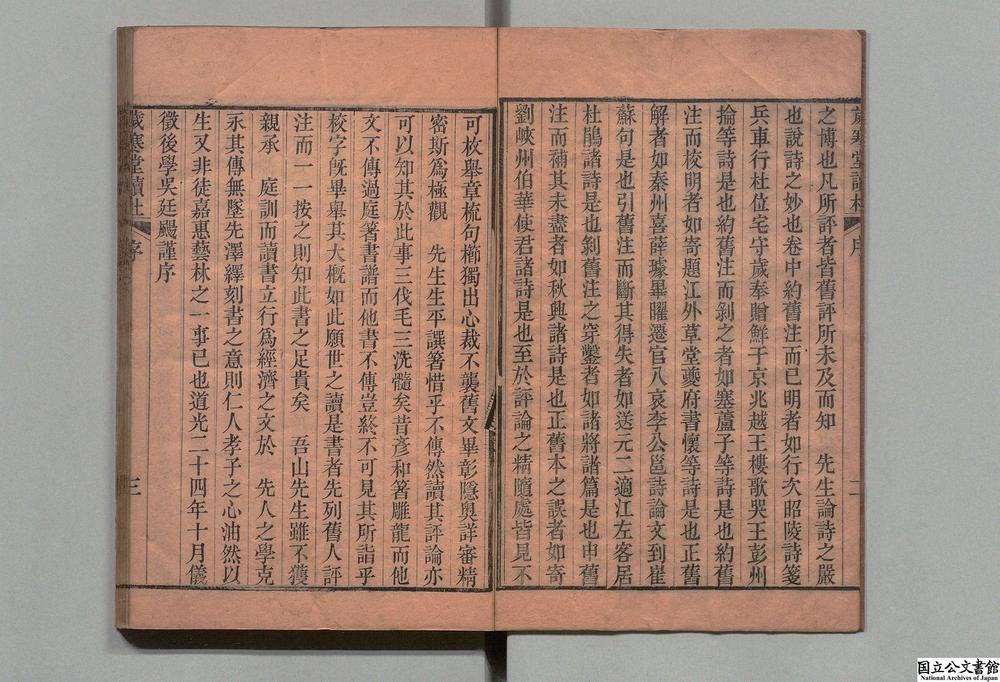 歲寒堂讀杜 序 二
之博也凡所評者皆舊評所未及而知　先生論詩之嚴
也說詩之妙也卷中約舊注而已明者如行次昭陵詩箋
兵車行杜位宅守歲奉贈鮮于京兆越王樓歌哭王彭州
掄等詩是也約舊注而剝之者如塞蘆子等詩是也約舊
注而校明者如寄題江外草堂夔府書懷等詩是也正舊
解者如秦州喜薛璩畢曜遷官八哀李公邕詩論文到崔
蘇句是也引舊注而斷其得失者如送元二適江左客居
杜鵑諸詩是也剝舊注之穿鑿者如諸將諸篇是也申舊
注而補其未盡者如秋興諸詩是也正舊本之誤者如寄
劉峽州伯華使君諸詩是也至於評論之精隨處皆見不
可枚舉章梳句櫛獨出心裁不襲舊文畢彰隱奧詳審精
密斯爲極觀　先生生平譔箸惜乎不傳然讀其評論亦
可以知其於此事三伐毛三洗髓矣昔彥和箸雕龍而他
文不傳過庭箸書譜而他書不傳豈終不可見其所詣乎
校字旣畢舉其大槪如此願世之讀是書者先列舊人評
注而一一按之則知此書之足貴矣　吾山先生雖不獲
親承　庭訓而讀書立行爲經濟之文於　先人之學克
永其傳無墜先澤繹刻書之意則仁人孝子之心油然以
生又非徒嘉惠藝林之一事已也道光二十四年十月儀
徵後學吳廷颺謹序
歲寒堂讀杜 序 三
国立公文書館
National Archives of Japan